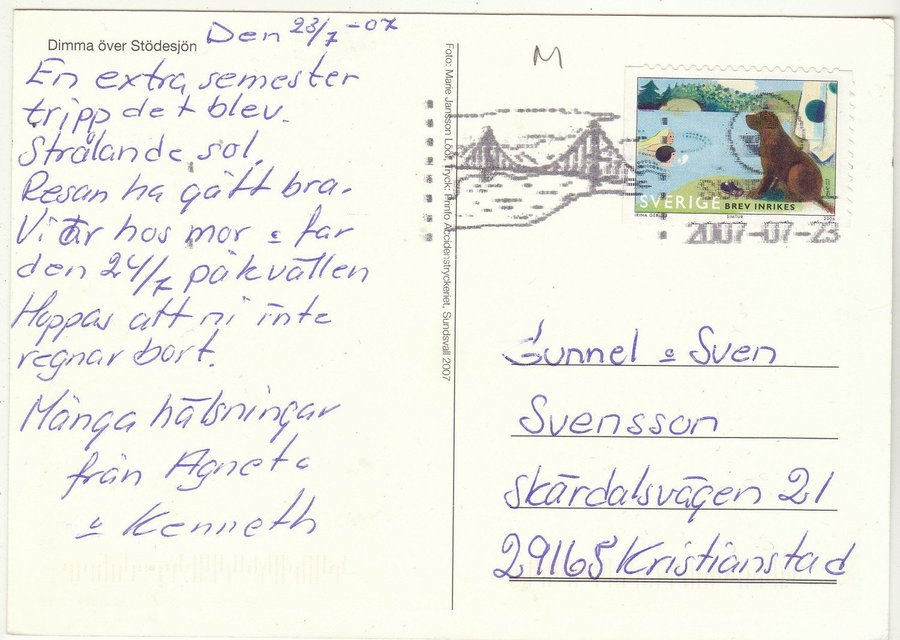 Dimma över Stödesjön
Den 23/7-07
En extra semester
tripp det blev.
Strålande sol.
Resan ha gått bra.
Vi är hos mor o far
den 24/7 på kvällen
Hoppas att ni inte
regnar bort.
Många hälsningar
från Agneta
o Kenneth
Foto: Marie Jansson Lööf, Tryck: Printo Accidenstryckeriet, Sundsvall 2007
M
SVERIGE BREV INRIKES
2007-07-23
Gunnel o Sven
Svensson
Skärdalsvägen 21
29165 Kristianstad